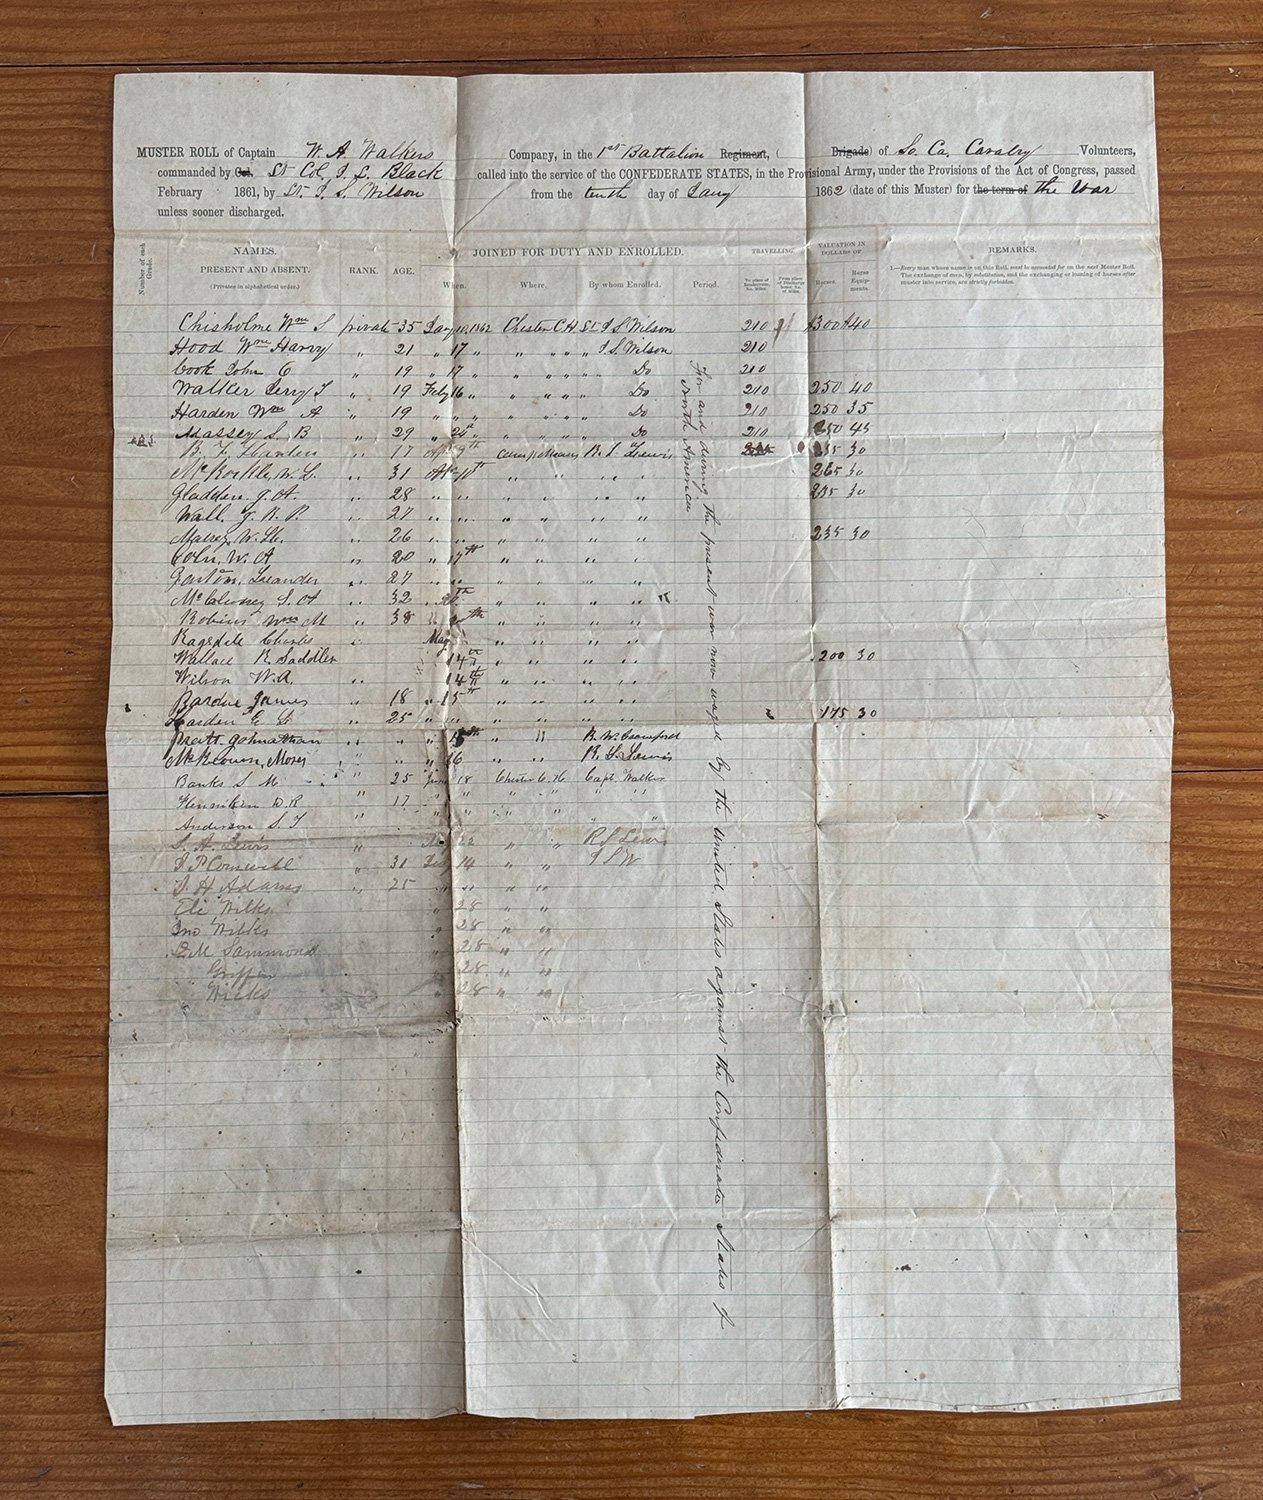 MUSTER ROLL of Captain W. A. Walkers Company, in the 1st Battalion Regiment, ( Brigade) of So. Ca. Cavalry Volunteers,
commanded by Col. Lt Col. J. L. Black called into the service of the CONFEDERATE STATES, in the Provisional Army, under the Provisions of the Act of Congress, passed
February 1861, by Lt. J. S. Wilson from the tenth day of Jany 1862 (date of this Muster) for the term of the War
unless sooner discharged.
Number of each Grade. NAMES. JOINED FOR DUTY AND ENROLLED. TRAVELLING. VALUATION IN DOLLARS OF REMARKS.
PRESENT AND ABSENT. RANK. AGE.
(Privates in alphabetical order.) When. Where. By whom Enrolled. Period. To place of Rendezvous, No. Miles. From place of Discharge home No. of Miles. Horses. Horse Equipments.
1.—Every man whose name is on this Roll, must be accounted for on the next Muster Roll.
The exchange of men, by substitution, and the exchanging or loaning of horses after
muster into service, are strictly forbidden.
Chisholme Wm S private 35 Jany 10, 1862 Chester C.H. Lt J S Wilson 210 300 40
Hood Wm Harry " 21 " 17 " " " " " J. S. Wilson 210
Cook John C " 19 " 17 " " " " " Do 210
Walker Jerry T " 19 Feby 16 " " " " " Do 210 250 40
Harden Wm A " 19 " " " " " " " Do 210 250 35
Massey S. B " 29 " " " " " " Do 210 250 45
" 17 9th R. S. Lewis 235 30
" 31 10th " " " 265 30
Gladden J. A. " 28 " " " " " " " 235 30
Wall, J. R. P. " 27 " " " " " " "
" 26 " " " " " " " 235 30
W. A " 20 " 17th " " " "
Leander " 27 " " " " " " "
S. A " 32 " " " " "
Robins Wm M " 38 " " " " "
Ragsdale Charles " May " " " "
Wallace R. Saddler 14th " " " " 200 30
Wilson W. A. " 14th " " " "
Bardue James " 18 " 15th " " " "
Harden E. " 25 " " " " " " " 175 30
Pratt Johnathan " " " " " R. W. Crawford
Moses " " 16 " " R. S. Lewis
Banks S. M. " 25 June 18 Chester C. H Capt. Walker
D. R " 17 " " " " " "
Anderson S. T " " " " " "
S. A. Lewis " 22 " " R S Lewis
J. P Cornwell " 31 14 " " J S W
J. H Adams " 25 " " " "
Eli Wilks " 28 " "
Jno Wilks " 28 " "
E M Sammons " 28 " "
Griffin " 28 " "
Wilks " 28 " "
For and during the present war now waged by the United States against the Confederate States of
North America